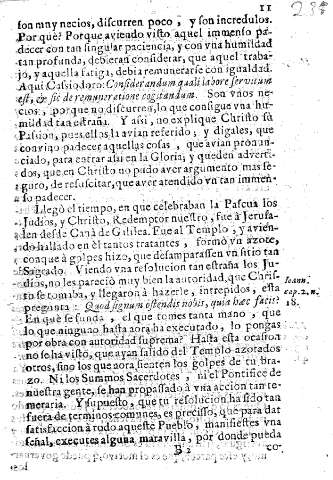 11
son muy necios, discurren poco, y son incredulos.
Por què? Porque aviendo visto aquel immenso pa-
decer con tan singular paciencia, y con vna humildad
tan profunda, debieran considerar, que aquel traba-
jo, y aquella fatiga, debia remunerarse con igualdad.
Aqui Casiodoro: Considerandum quali labore servitum
est, & sic de remuneratione cogitandum. Son vnos ne-
cios, porque no discurren, lo que consigue vna hu-
mildad tan estraña. Y assi, no explique Christo sù
Passion, pues ellos la avian referido; y digales, que
convino padecer aquellas cosas, que avian pronun-
ciado, para entrar assi en la Gloria; y queden adverti-
dos, que en Christo no pudo aver argumento mas se-
guro, de resuscitar, que aver atendido vn tan immen-
so padecer.
Llegò el tiempo, en que celebraban la Pascua los
Judios, y Christo, Redemptor nuestro, fue à Jerusa-
len desde Canà de Galilea. Fue al Templo, y avien-
do hallado en èl tantos tratantes, formò vn azote,
conque à golpes hizo, que desamparassen vn sitio tan
Sagrado. Viendo vna resolucion tan estraña los Ju-
dios, no les pareciò muy bien la autoridad, que Chris-
to se tomaba, y llegaron à hazerle, intrepidos, esta
pregunta: Quod signum ostendis nobis, quia hæc facis?
Ioann.
cap. 2. n.
18.
En què se funda, el que tomes tanta mano, que
lo que ninguno hasta aora ha executado, lo pongas
por obra con autoridad suprema? Hasta esta ocasion
no se hà visto, que ayan salido del Templo azotados
otros, sino los que aora sienten los golpes de tu bra-
zo. Ni los Summos Sacerdotes, ni el Pontifice de
nuestra gente, se han propassado à vna accion tan te-
meraria. Y supuesto, que tu resolucion ha sido tan
fuera de terminos comunes, es precisso, que para dàr
satisfaccion à todo aqueste Pueblo, manifiestes vna
señal, executes alguna maravilla, por donde pueda
B 2 co-